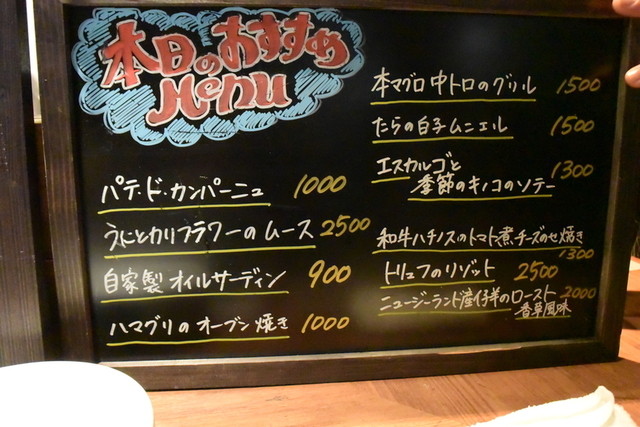 本日のおすすめ
Menu
パテ・ド・カンパーニュ 1000
うにとカリフラワーのムース 2500
自家製オイルサーディン 900
ハマグリのオーブン焼き 1000
本マグロ中トロのグリル 1500
たらの白子ムニエル 1500
エスカルゴと
季節のキノコのソテー 1300
和牛ハチノスのトマト煮チーズのせ焼き
1300
トリュフのリゾット 2500
ニュージーランド産仔羊のロースト 2000
香草風味